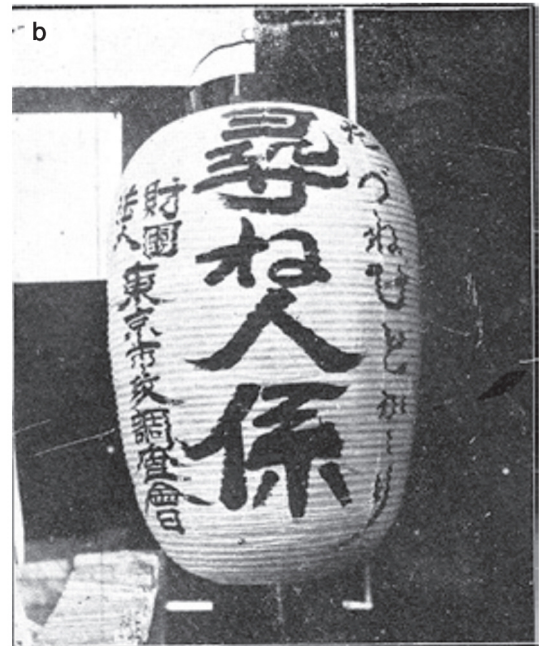 b
たづねびとかゝり
尋ね人係
財團
法人
東京市政調査會